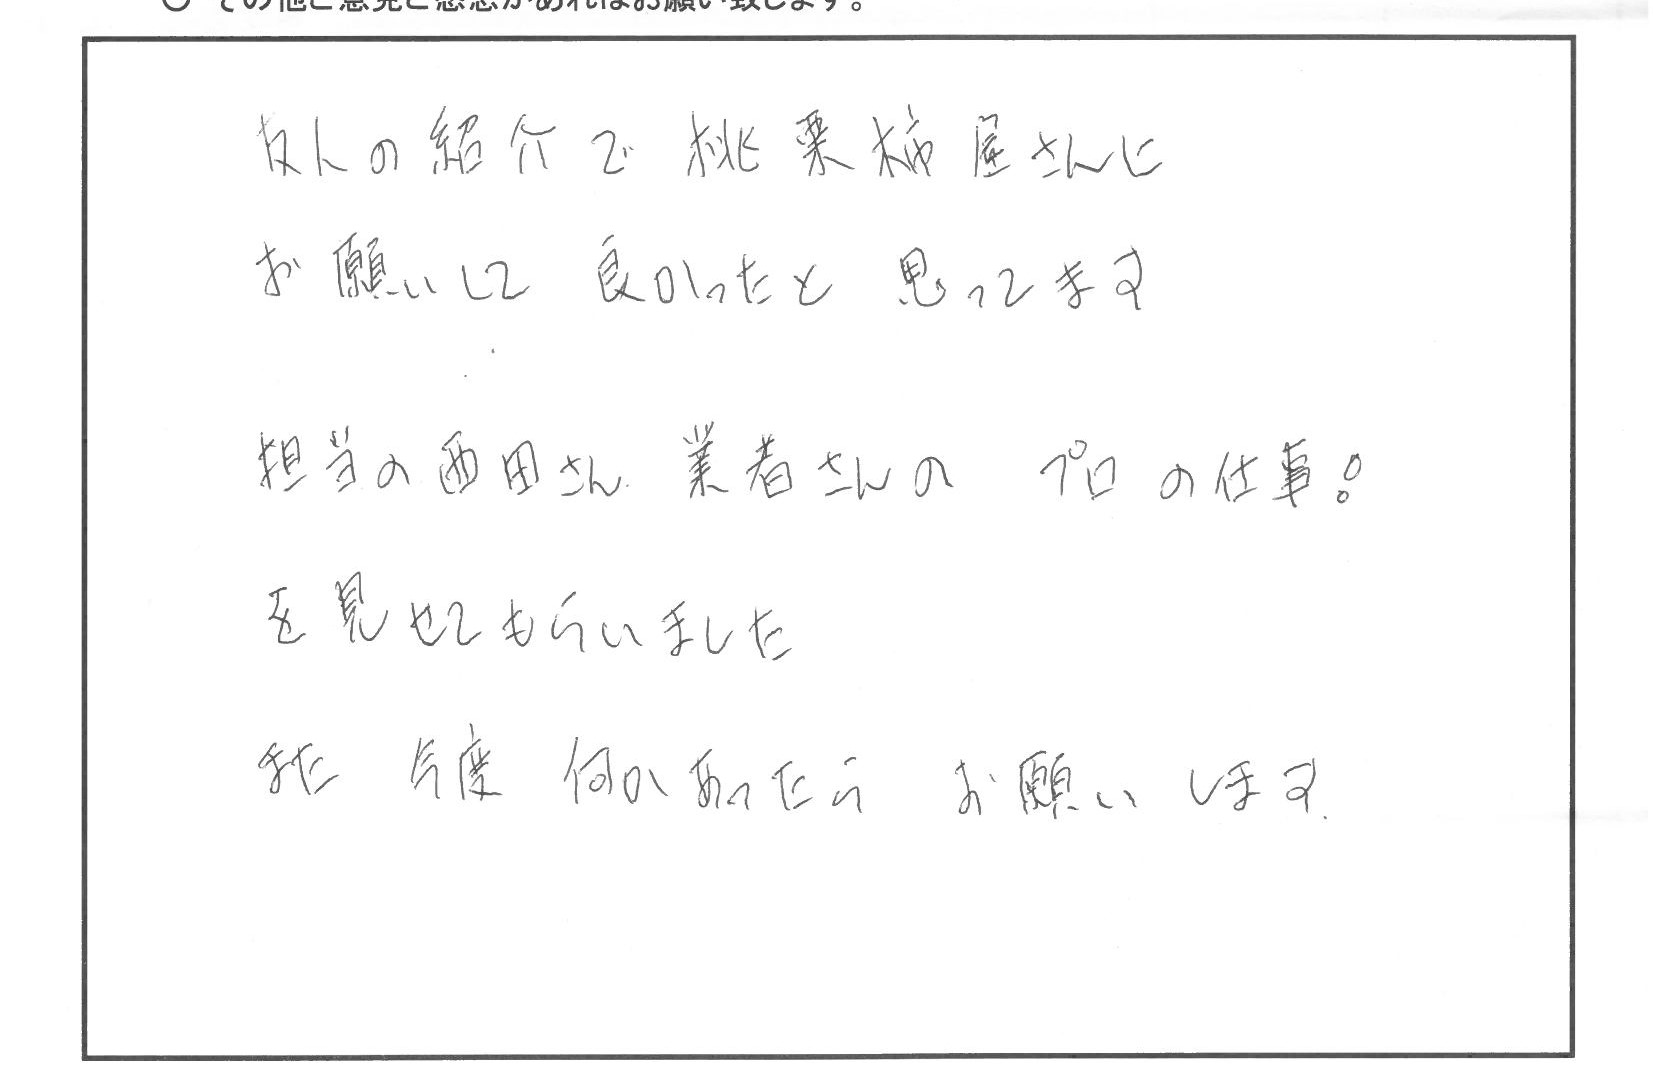 ○ その他ご意見ご感想があればお願い致します。
友人の紹介で 桃栗柿屋さんに
お願いして 良かったと 思ってます
担当の西田さん 業者さんの プロの仕事!
を見せてもらいました
また 今度 何かあったら お願いします.